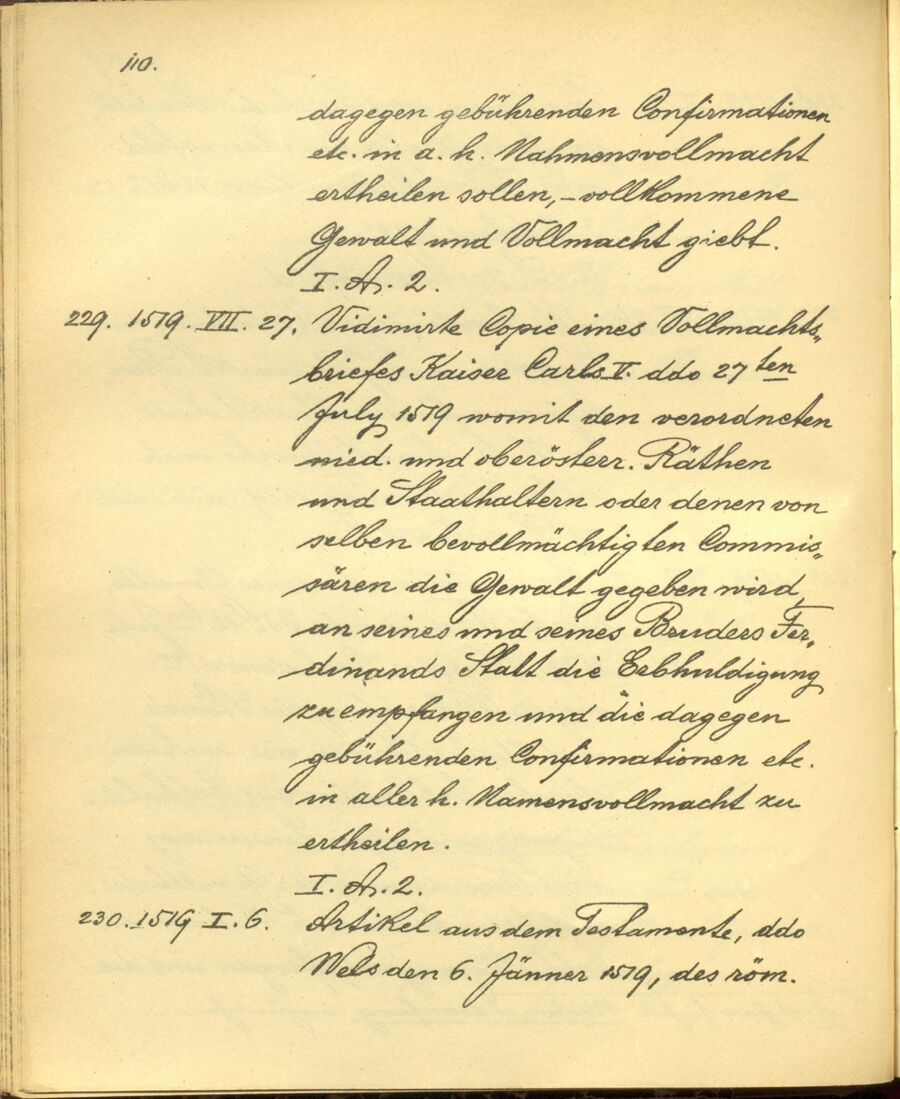 110.
dagegen gebührenden Confirmationen
etc. in a. h. Nahmensvollmacht
ertheilen sollen, – vollkommene
Gewalt und Vollmacht giebt.
I. A. 2.
229. 1519. VII. 27. Vidimirte Copie eines Vollmachts„
briefes Kaiser Carls V. ddo 27ten
July 1519 womit den verordneten
nied. und oberösterr. Räthen
und Staathaltern oder denen von
selben bevollmächtigten Commis„
sären die Gewalt gegeben wird,
an seines und seines Bruders Fer„
dinands Statt die Erbhuldigung
zu empfangen und die dagegen
gebührenden Confirmationen etc.
in aller h. Namensvollmacht zu
ertheilen.
I. A. 2.
230. 1519 I. 6. Artikel aus dem Testamente, ddo
Wels den 6. Jänner 1519, des röm.